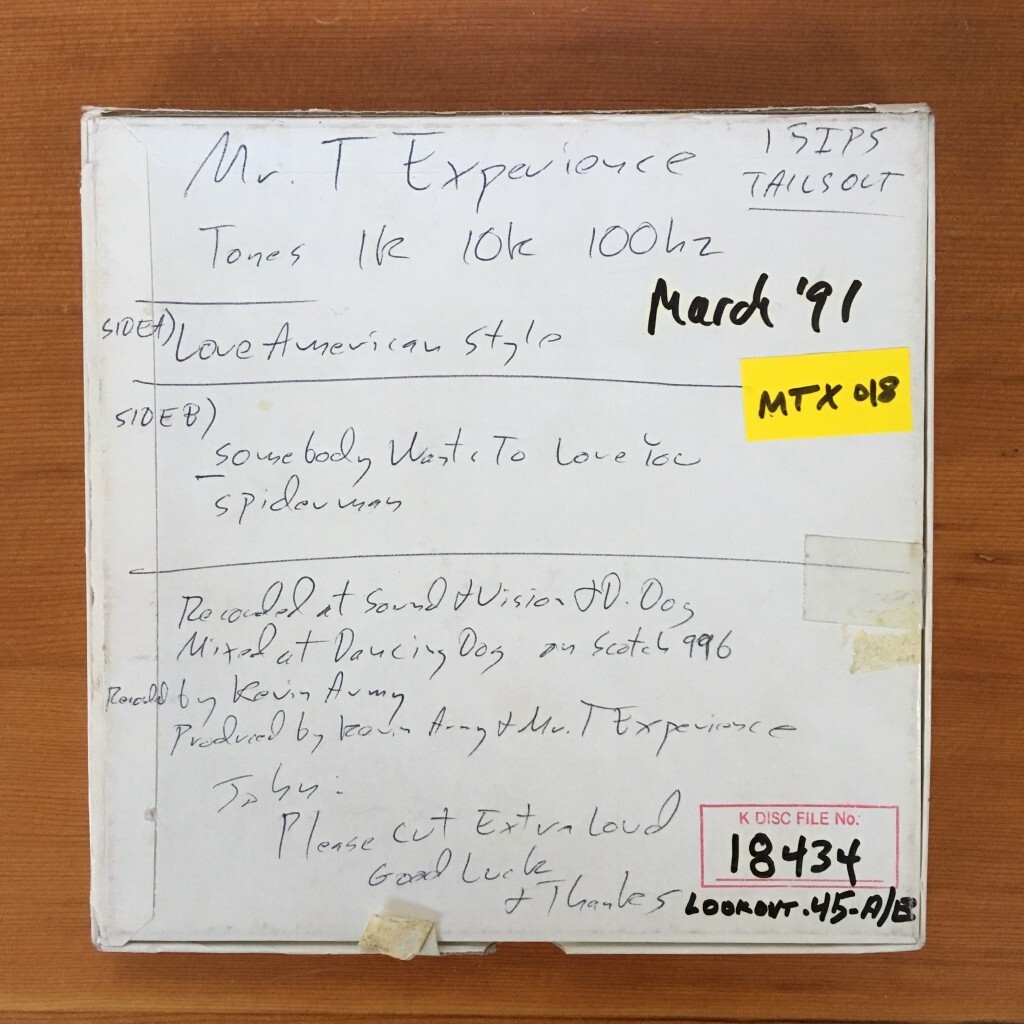 Mr. T Experience
15IPS
TAILSOUT
Tones 1k 10k 100hz
March '91
SIDE A) Love American Style
MTX 018
SIDE B)
Somebody Wants To Love You
Spiderman
Recorded at Sound & Vision & D. Dog
Mixed at Dancing Dog on Scotch 996
Recorded by Kevin Army
Produced by Kevin Army & Mr. T Experience
John:
Please cut Extra Loud
Good Luck
& Thanks
K DISC FILE No.
18434
LOOKOUT.45-A/B